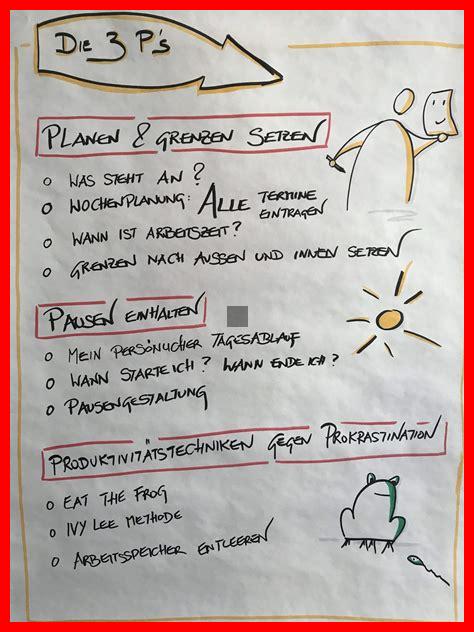 Die 3 P's
PLANEN & GRENZEN SETZEN
WAS STEHT AN?
WOCHENPLANUNG: ALLE TERMINE EINTRAGEN
WANN IST ARBEITSZEIT?
GRENZEN NACH AUSSEN UND INNEN SETZEN
PAUSEN EINHALTEN
MEIN PERSÖNLICHER TAGESABLAUF
WANN STARTE ICH? WANN ENDE ICH?
PAUSENGESTALTUNG
PRODUKTIVITÄTSTECHNIKEN GEGEN PROKRASTINATION
EAT THE FROG
IVY LEE METHODE
ARBEITSSPEICHER ENTLEEREN